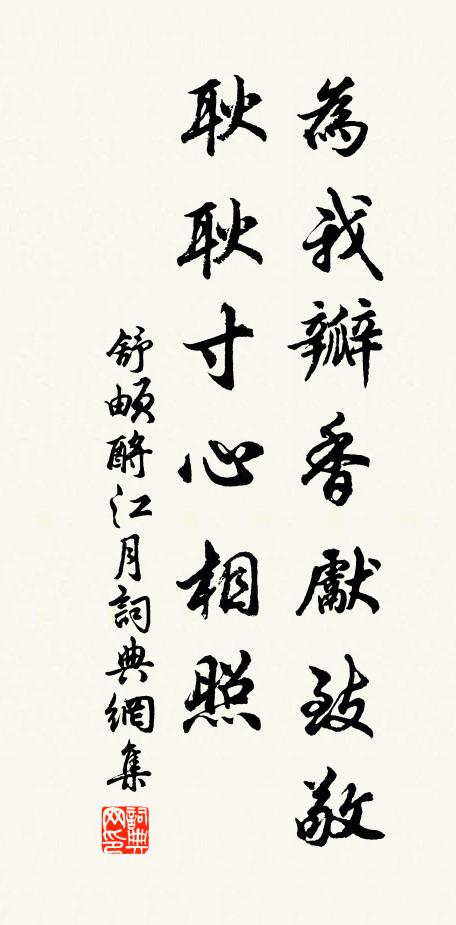 為我瓣香獻致敬
耿耿寸心相照
舒頔酹江月詞典網集
詞典網印